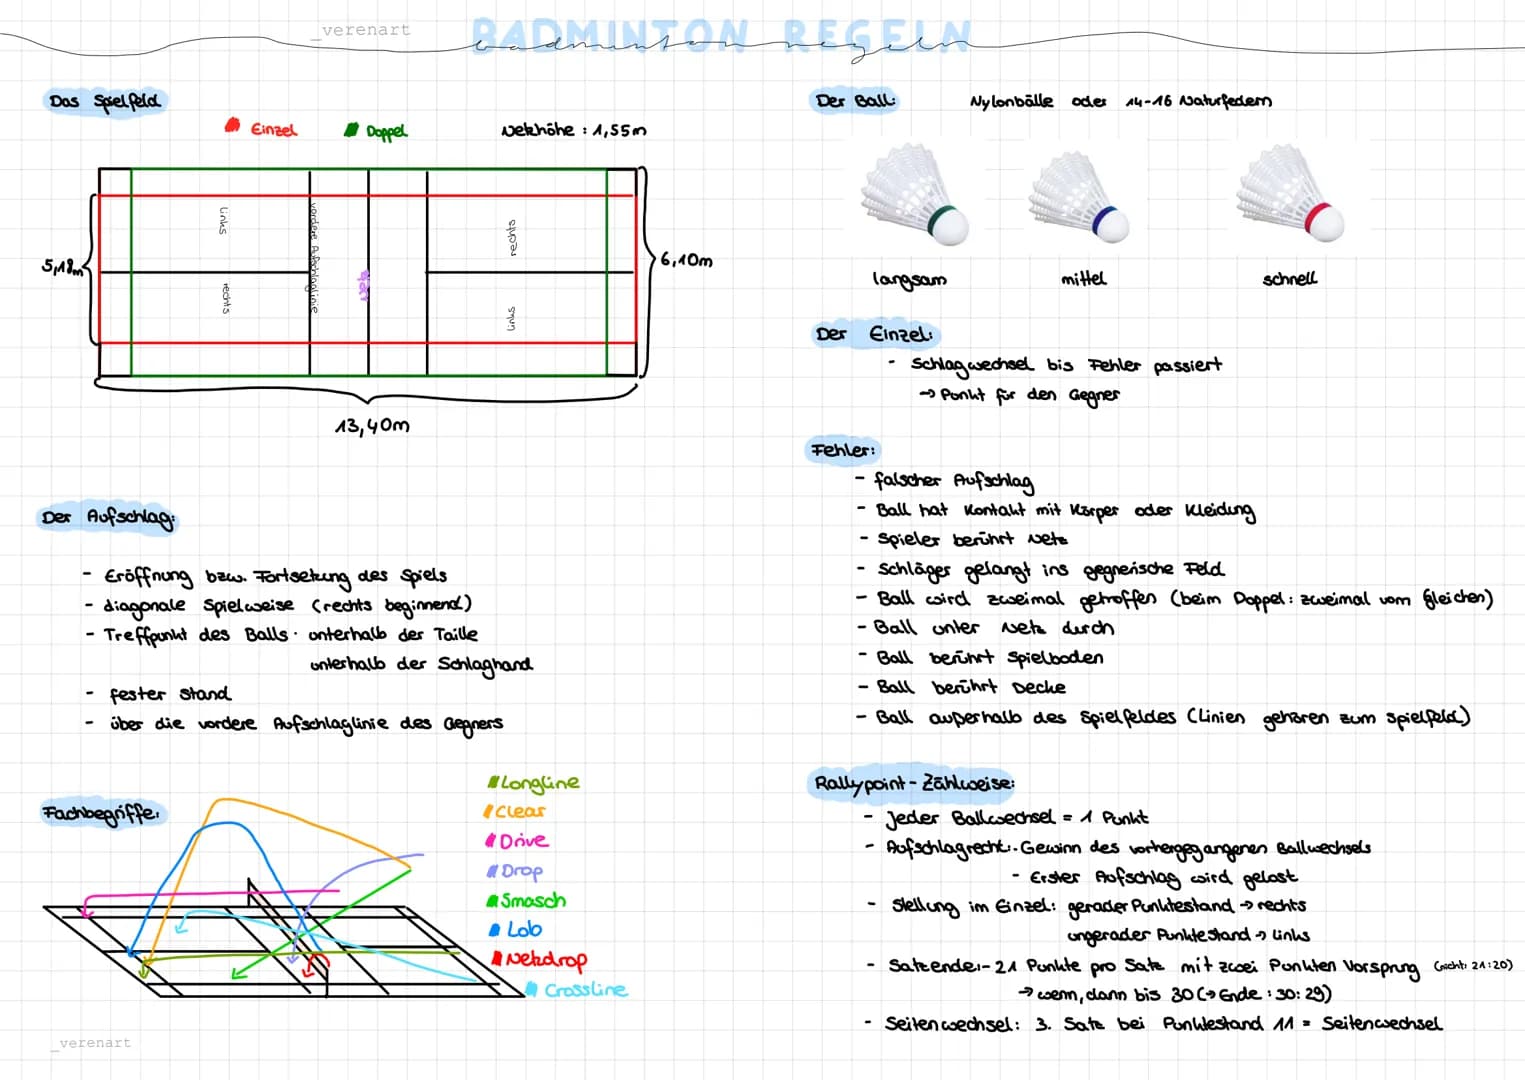 _verenart
BADMINTON REGELN
badminton regeln
Das Spielfeld
Einzel
Doppel
Netzhöhe : 1,55m
links
rechts
vordere Aufschlaglinie
rechts
links
5,18m
6,10m
13,40m
Der Aufschlag:
- Eröffnung bzw. Fortsetzung des Spiels
- diagonale Spielweise (rechts beginnend)
- Treffpunkt des Balls: unterhalb der Taille
unterhalb der Schlaghand
- fester Stand
- über die vordere Aufschlaglinie des Gegners
Fachbegriffe:
Longline
Clear
Drive
Drop
Smasch
Lob
Netzdrop
Crossline
_verenart
Der Ball:
Nylonbälle oder 14-16 Naturfedern
langsam
mittel
schnell
Der Einzel:
- Schlagwechsel bis Fehler passiert
→ Punkt für den Gegner
Fehler:
- falscher Aufschlag
- Ball hat Kontakt mit Körper oder Kleidung
- Spieler berührt Netz
- Schläger gelangt ins gegnerische Feld
- Ball wird zweimal getroffen (beim Doppel: zweimal vom gleichen)
- Ball unter Netz durch
- Ball berührt Spielboden
- Ball berührt Decke
- Ball außerhalb des Spielfeldes (Linien gehören zum Spielfeld)
Rallypoint-Zählweise:
- Jeder Ballwechsel = 1 Punkt
- Aufschlagrecht:- Gewinn des vorhergegangenen Ballwechsels
- Erster Aufschlag wird gelost
- Stellung im Einzel: gerader Punktestand → rechts
ungerader Punktestand → links
- Satzende:- 21 Punkte pro Satz mit zwei Punkten Vorsprung (nicht: 21:20)
→ wenn, dann bis 30 (→ Ende : 30:29)
- Seitenwechsel: 3. Satz bei Punktestand 11 = Seitenwechsel